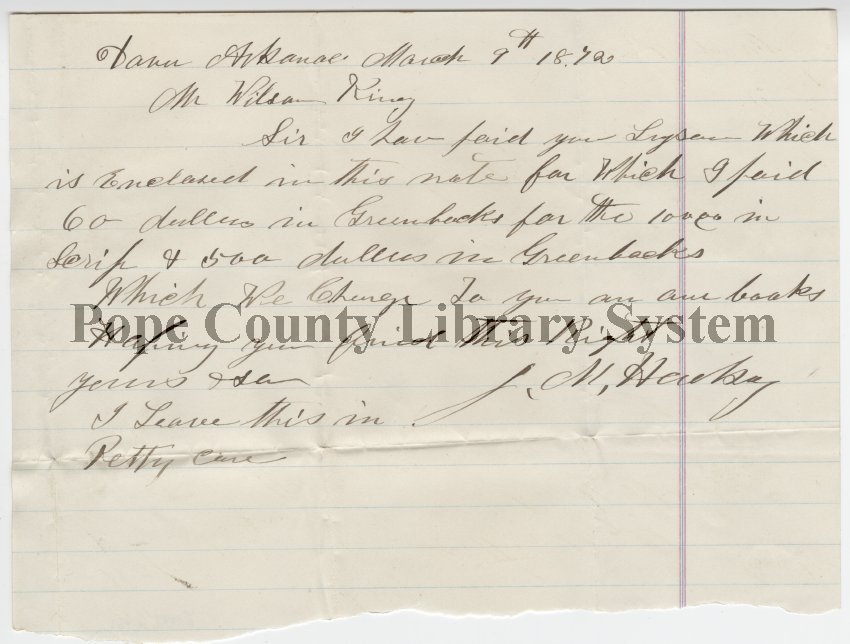 Arkansas March 9th 1872
Mr Wilson King
Sir I hav paid you Which
is Enclosed in this note for Which I paid
60 dullers in Greenbacks for the in
Scrip & 500 dullers in Greenbacks
Which We Charge To you on our books
Pope County Library System
Hoping you find this Right
yours &
J. M,
I Leave this in
Petty care